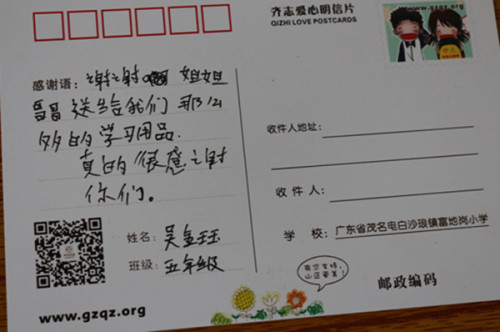 齐志爱心明信片
QIZHI LOVE POSTCARDS
www.gzqz.org
感谢语：谢谢 姐姐
哥哥送给我们那么
多的学习用品.
真的很感谢
你们。
收件人地址：
收 件 人：
学 校：广东省茂名电白沙琅镇富地岗小学
姓名：吴金珏
班级：五年级
邮政编码
www.gzqz.org